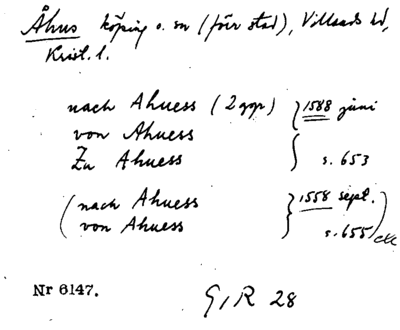 Åhus köping o. sn (förr stad), Villands hd,
Krist. l.
nach Ahuess (2 ggr) } 1588 juni
von Ahuess
Zu Ahuess } s. 653
(nach Ahuess } 1558 sept.)
(von Ahuess } s. 655) etc
Nr 6147. G I R 28